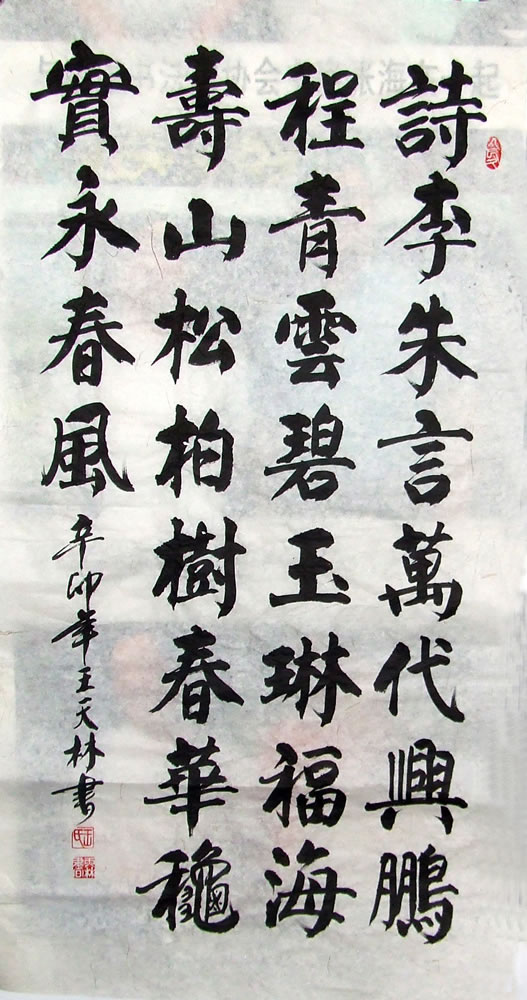 詩李朱言萬代興鵬
程青雲碧玉琳福海
壽山松柏樹春華龝
實永春風
辛卯年王天林書